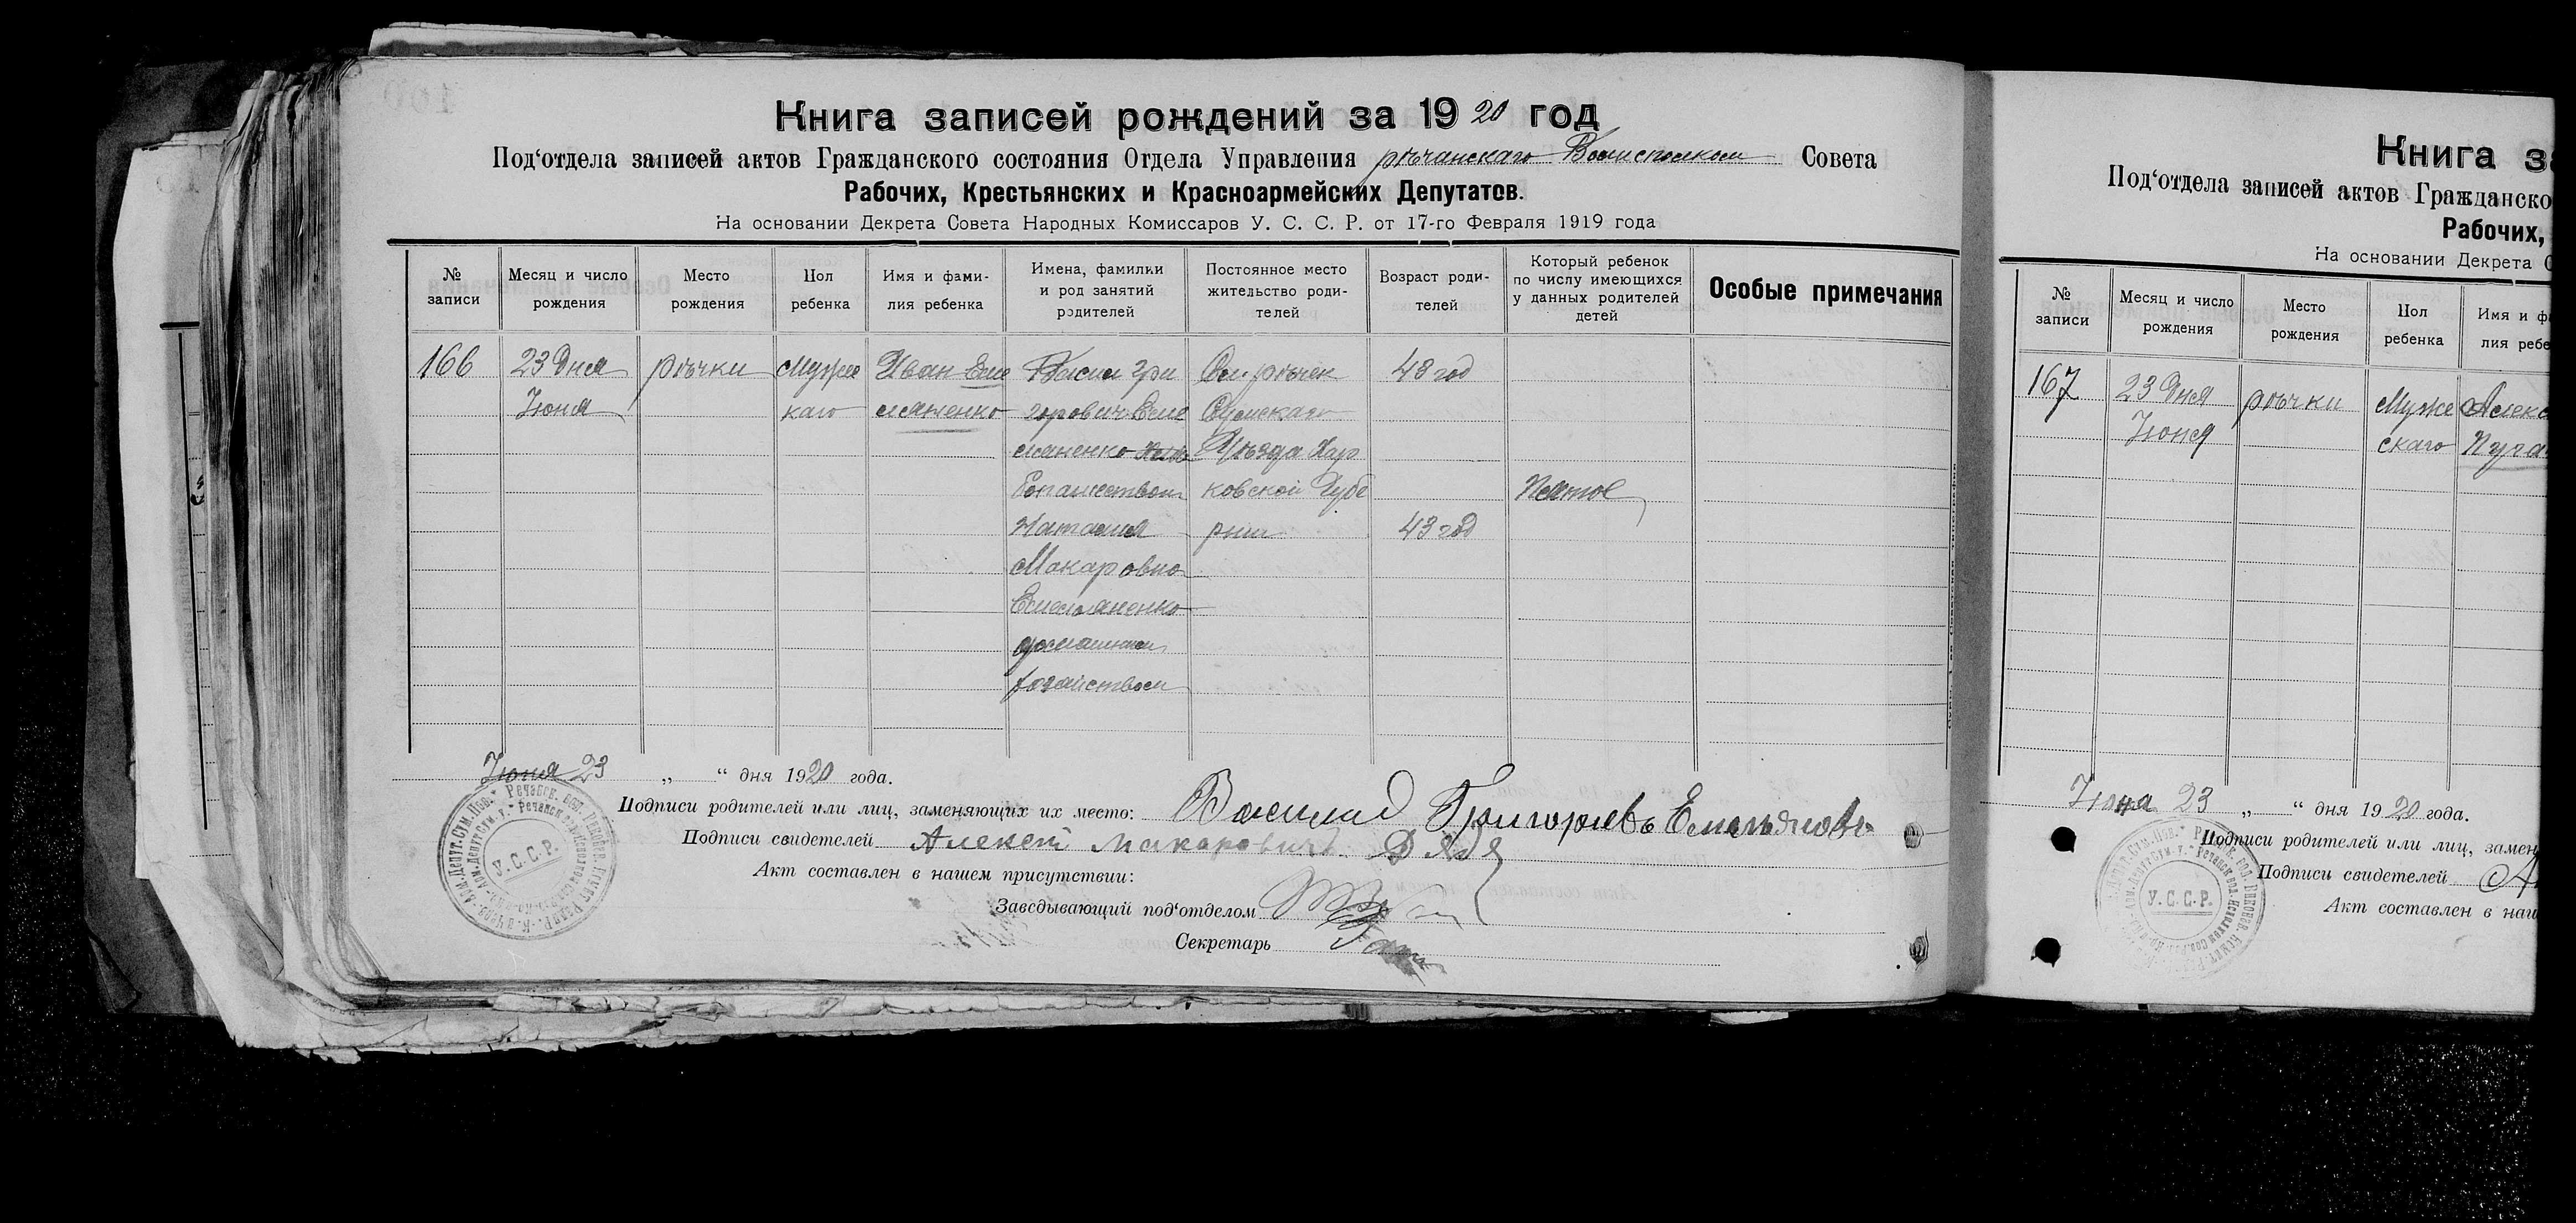 Книга записей рождений за 1920 год
Под‘отдела записей актов Гражданского состояния Отдела Управления рѣчанскаго Волисполком Совета
Рабочих, Крестьянских и Красноармейских Депутатов.
На основании Декрета Совета Народных Комиссаров У. С. С. Р. от 17-го Февраля 1919 года
№ записи
Месяц и число рождения
Место рождения
Пол ребенка
Имя и фами-
лия ребенка
Имена, фамилии
и род занятий
родителей
Постоянное место
жительство роди-
телей
Возраст роди-
телей
Который ребенок
по числу имеющихся
у данных родителей
детей
Особые примечания
166
23 Дня
Июня
рѣчки
Муже
каго
Иван Еме
ляненко
Васил Гри
горович Еме
ляненко
Хопашеством
Наталия
Макаровна
Емельяненко
домашнем
хозайством
Сел. рѣчек
Сумскаго
Уѣзда Хар
ковской Губе
рнии
48 год
43 год
Пятое
Июня 23 „ “ дня 1920 года.
Подписи родителей или лиц, заменяющих их место: Василий Григориевъ Емельянов
Подписи свидетелей Алексей Макаровичъ Дядя
Акт составлен в нашем присутствии:
Заведывающий под‘отделом
Секретарь
У.С.С.Р.
Книга за
Под‘отдела записей актов Гражданско
Рабочих,
На основании Декрета С
№ записи
Месяц и число рождения
Место рождения
Пол ребенка
Имя и фа
лия ребе
167
23 Дня
Июня
рѣчки
Муже
скаго
Алекс
Пуга
Июня 23 „ “ дня 1920 года.
Подписи родителей или лиц, замен
Подписи свидетелей А
Акт составлен в наш
У.С.С.Р.